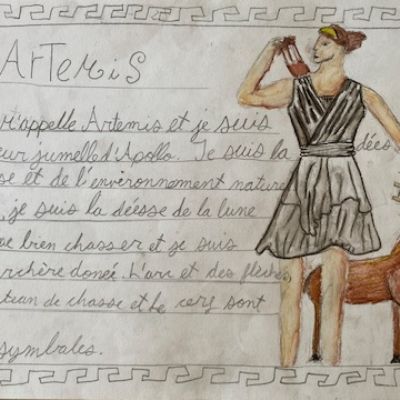 Artemis
m'appelle Artemis et je suis
jumelle d'Apollo. Je suis la dées
et de l'environnement nature
je suis la déesse de la lune
bien chasser et je suis
donée. L'arc et des flèches,
de chasse et le cerf sont
symboles.